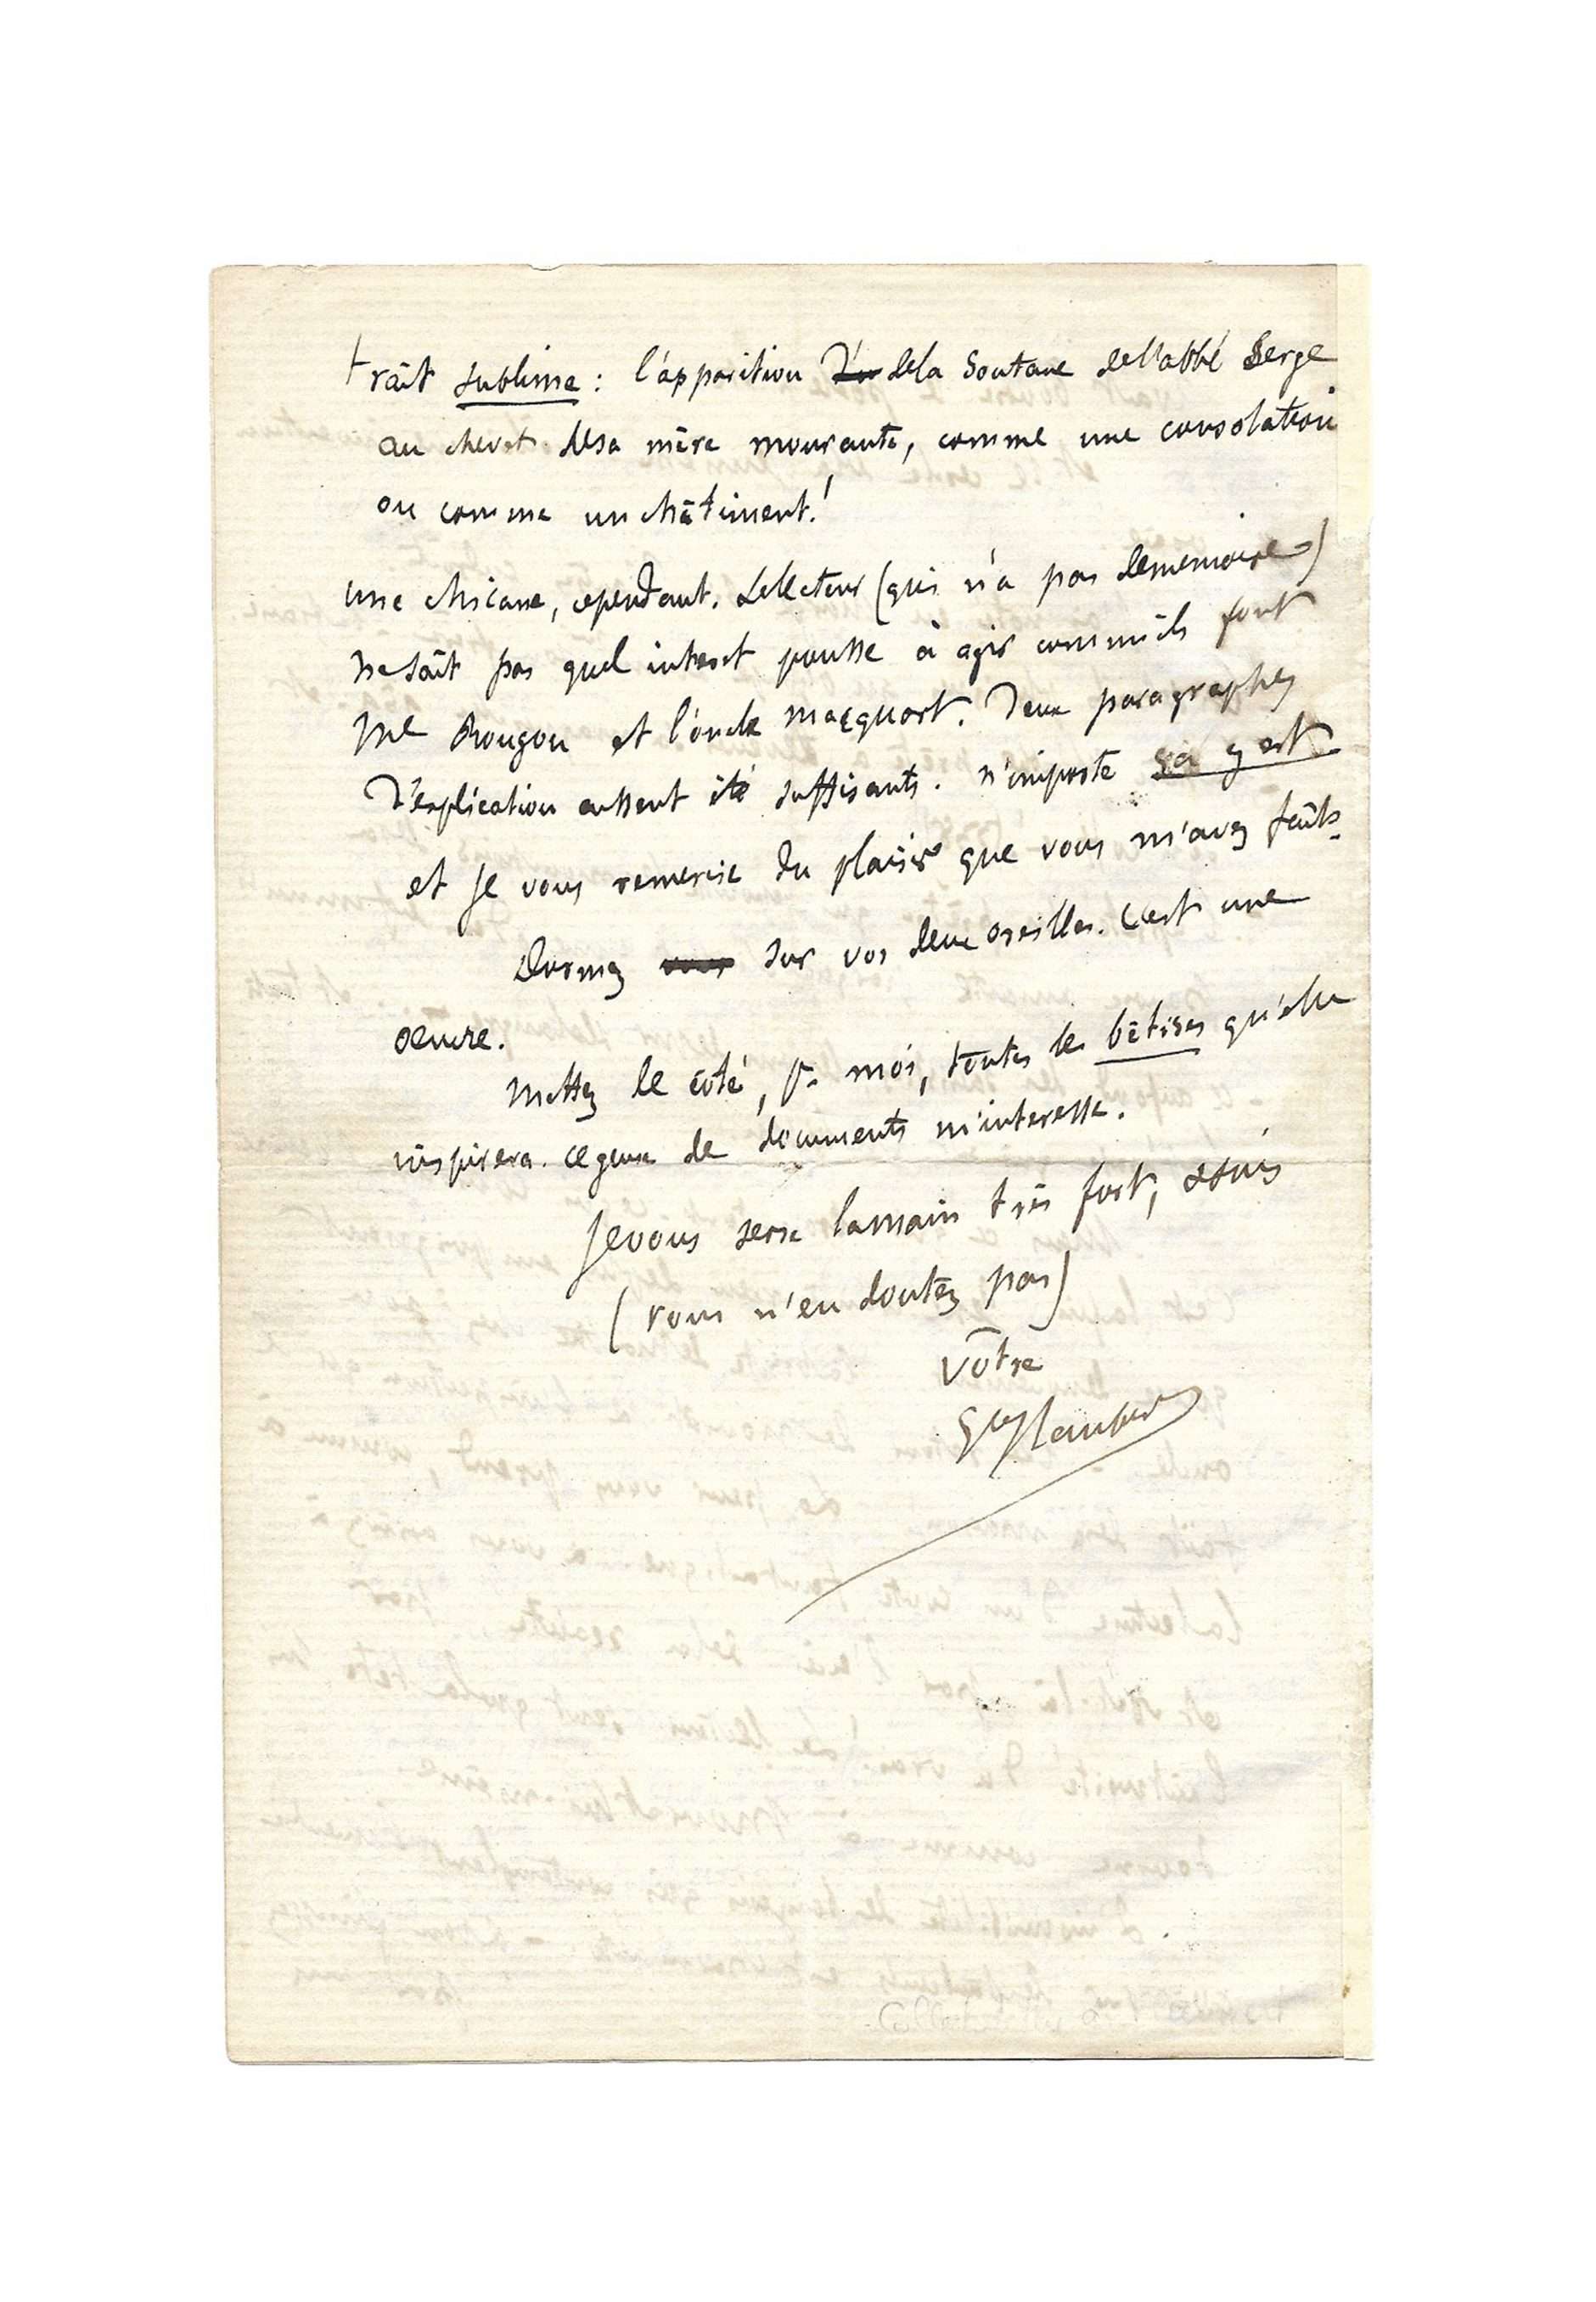 trait sublime : l'apparition d'un dela Soutane del'abbé Serge
au chevet desa mère mourante, comme une consolation
ou comme un châtiment!
une chicane, cependant. Lelecteur (qui n'a pas demémoire)
nesait pas quel interet pousse à agir comm'ils font
Me Rougon et l'oncle Macquart. Deux paragraphes
d'explication eussent été suffisants. n'importe ça y est
et Je vous remercie du plaisir que vous m'avez fait.
Dormez vous sur vos deux oreilles. C'est une
oeuvre.
Mettez de coté, pr moi, toutes les bêtises qu'elle
inspirera. ce genre de documents m'interesse.
Jevous serre lamain très fort, & suis
(vous n'en doutez pas)
vôtre
Gve Flaubert